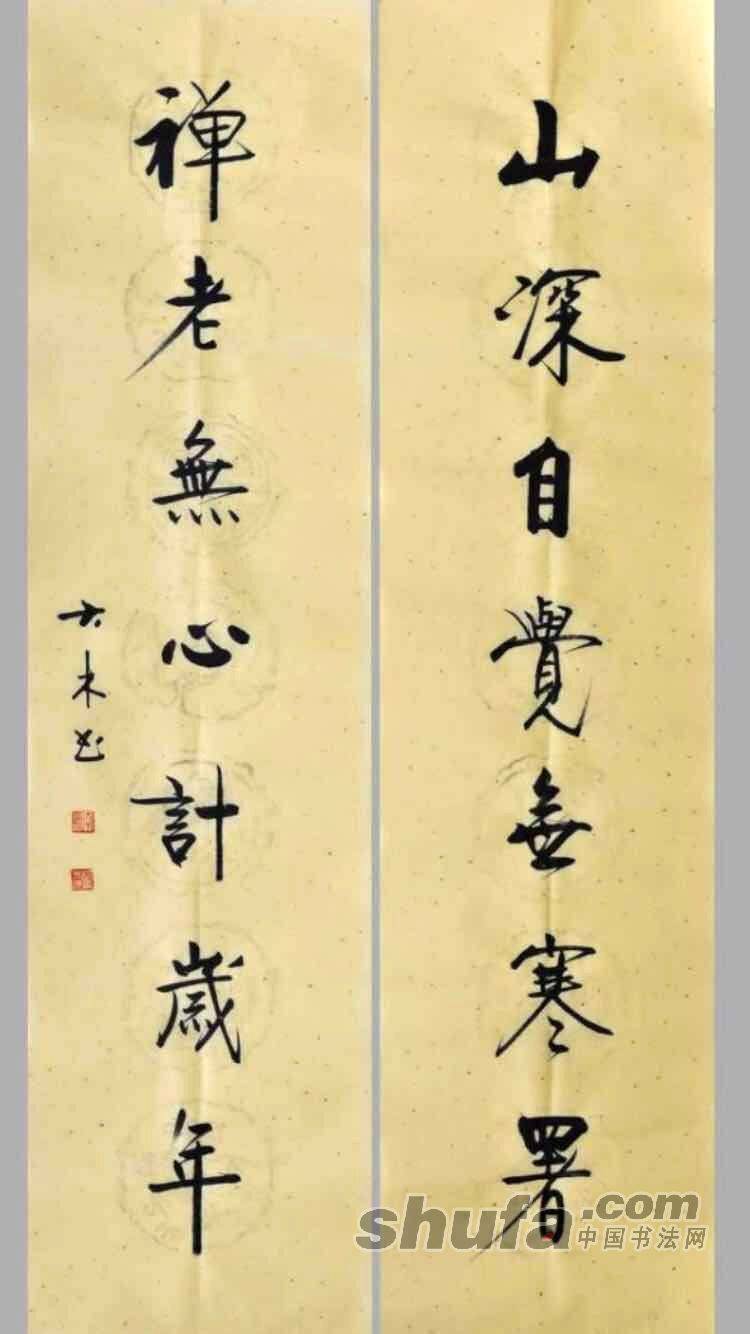 山深自覺無寒署
禪老無心計歲年
大木书
shufa.com
中国书法网